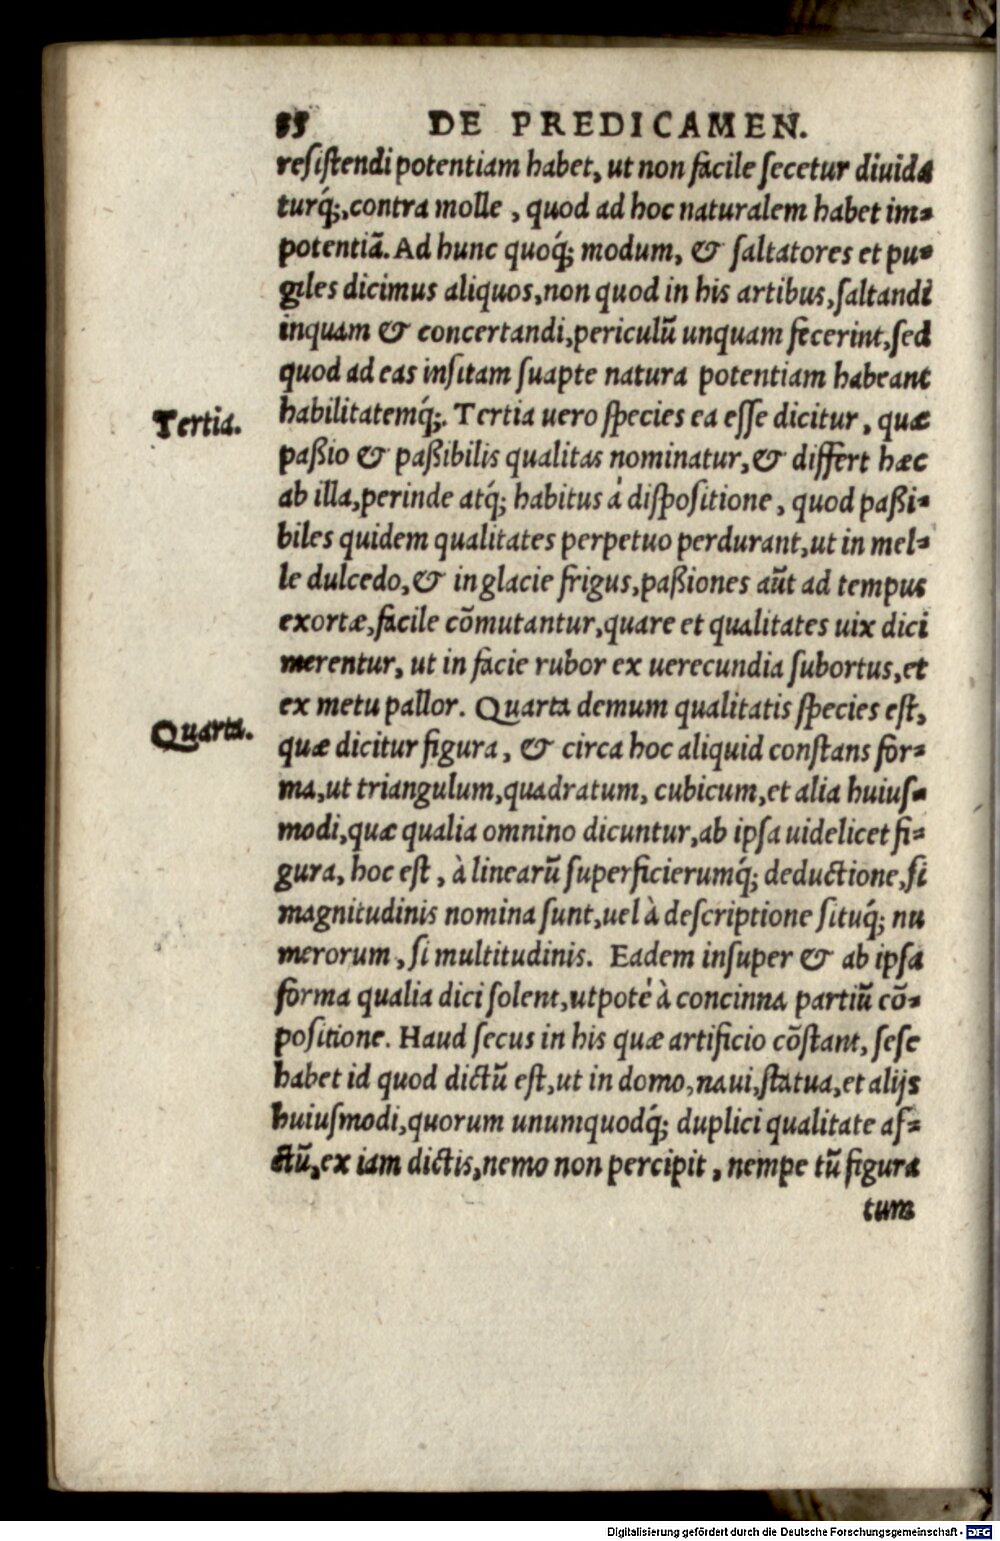 85 DE PREDICAMEN.
resistendi potentiam habet, ut non facile secetur diuida
turq́;, contra molle, quod ad hoc naturalem habet im=
potentiã. Ad hunc quoq́; modum, & saltatores et pu=
giles dicimus aliquos, non quod in his artibus, saltandi
inquam & concertandi, periculũ unquam fecerint, sed
quod ad eas insitam suapte natura potentiam habeant
Tertia.
habilitatemq́;. Tertia uero species ea esse dicitur, quæ
paßio & paßibilis qualitas nominatur, & differt hæc
ab illa, perinde atq́; habitus à dispositione, quod paßi=
biles quidem qualitates perpetuo perdurant, ut in mel=
le dulcedo, & in glacie frigus, paßiones aũt ad tempus
exortæ, facile cõmutantur, quare et qualitates uix dici
merentur, ut in facie rubor ex uerecundia subortus, et
ex metu pallor. Quarta demum qualitatis species est,
Quarta.
quæ dicitur figura, & circa hoc aliquid constans for=
ma, ut triangulum, quadratum, cubicum, et alia huius=
modi, quæ qualia omnino dicuntur, ab ipsa uidelicet fi=
gura, hoc est, à linearũ superficierumq́; deductione, si
magnitudinis nomina sunt, uel à descriptione situq́; nu
merorum, si multitudinis. Eadem insuper & ab ipsa
forma qualia dici solent, utpote à concinna partiũ cõ=
positione. Haud secus in his quæ artificio cõstant, sese
habet id quod dictũ est, ut in domo, naui, statua, et alijs
huiusmodi, quorum unumquodq́; duplici qualitate af=
ctũ, ex iam dictis, nemo non percipit, nempe tũ figura
tum
Digitalisierung gefördert durch die Deutsche Forschungsgemeinschaft - DFG